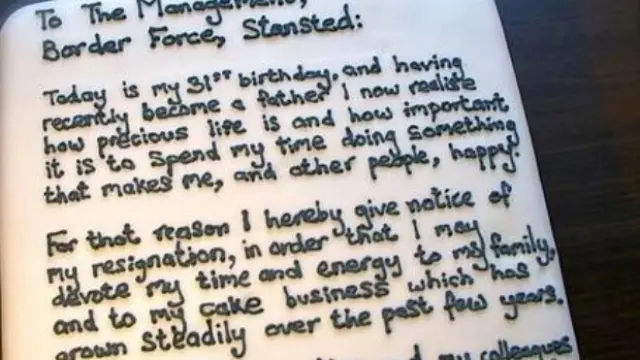 To The Management,
Border Force, Stansted:
Today is my 31st birthday, and having
recently become a father I now realise
how precious life is and how important
it is to spend my time doing something
that makes me, and other people, happy.
For that reason I hereby give notice of
my resignation, in order that I may
devote my time and energy to my family,
and to my cake business which has
grown steadily over the past few years.
my colleagues